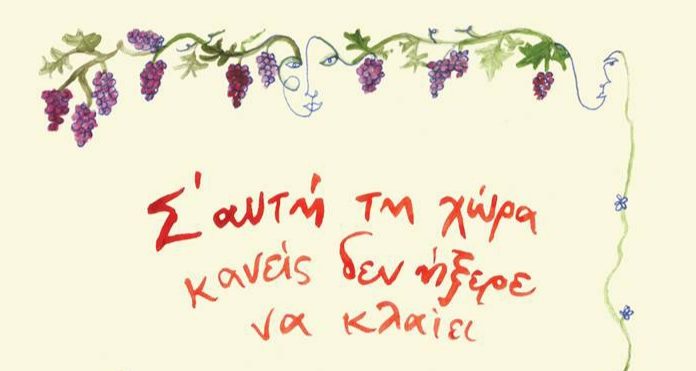 Σ' αυτή τη χώρα
κανείς δεν ήξερε
να κλαίει